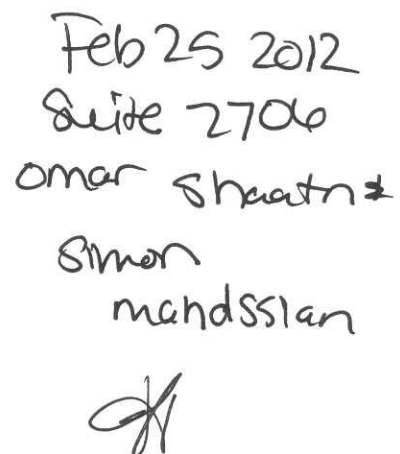 Feb 25 2012
Suite 2706
omar Shaatn &
Simon
mandssian